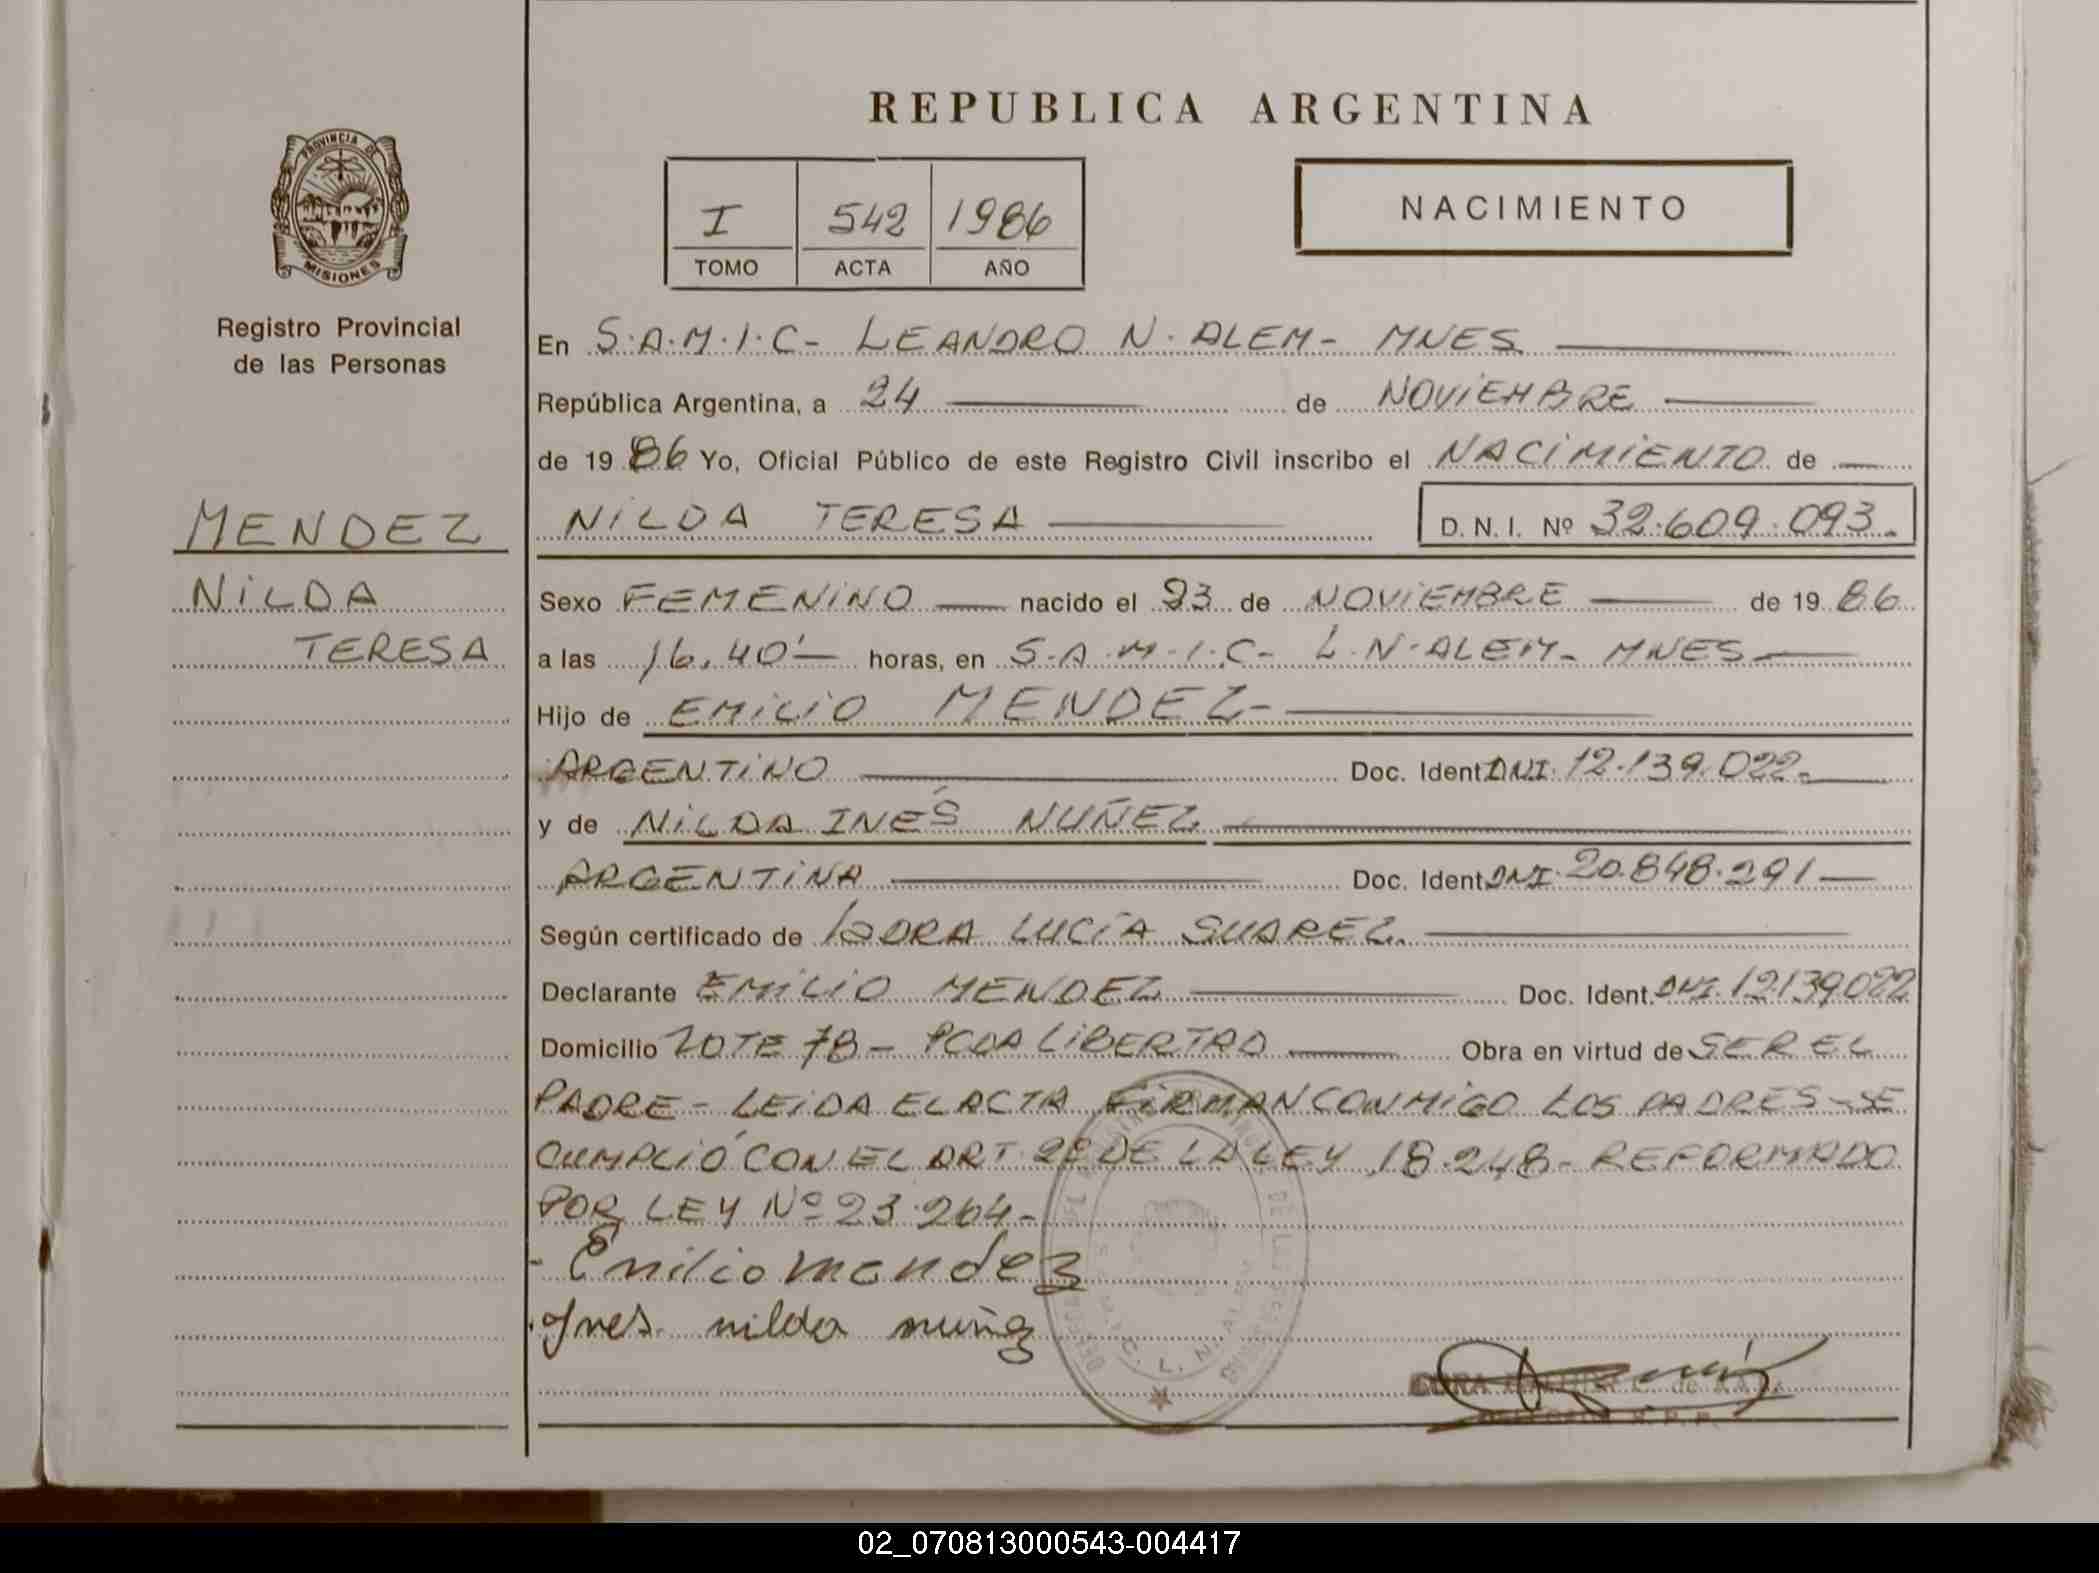 REPUBLICA ARGENTINA
PROVINCIA DE
MISIONES
Registro Provincial
de las Personas
I 542 1986
TOMO ACTA AÑO
NACIMIENTO
En S.A.M.I.C- LEANDRO N. ALEM- MNES
República Argentina, a 24 de NOVIEMBRE
de 1986 Yo, Oficial Público de este Registro Civil inscribo el NACIMIENTO de
MENDEZ
NILDA TERESA D. N. I. Nº 32.609.093.
NILDA
TERESA
Sexo FEMENINO nacido el 23 de NOVIEMBRE de 1986
a las 16,40' horas, en S.A.M.I.C- L.N.ALEM- MNES
Hijo de EMILIO MENDEZ-
ARGENTINO Doc. Ident. DNI. 12.139.022.
y de NILDA INÉS NUÑEZ
ARGENTINA Doc. Ident. DNI. 20.848.291
Según certificado de LUCÍA SUAREZ.
Declarante EMILIO MENDEZ Doc. Ident. DNI. 12139022
Domicilio LOTE 78- PCDA LIBERTAD Obra en virtud de SER EL
PADRE- LEIDA EL ACTA FIRMAN CONMIGO LOS PADRES-SE
CUMPLIÓ CON EL ART 28 DE LA LEY 18.248- REFORMADO
POR LEY Nº 23.264-
- Emilio mendez
Ynes nilda nuñez
L. N. ALEM
02_070813000543-004417